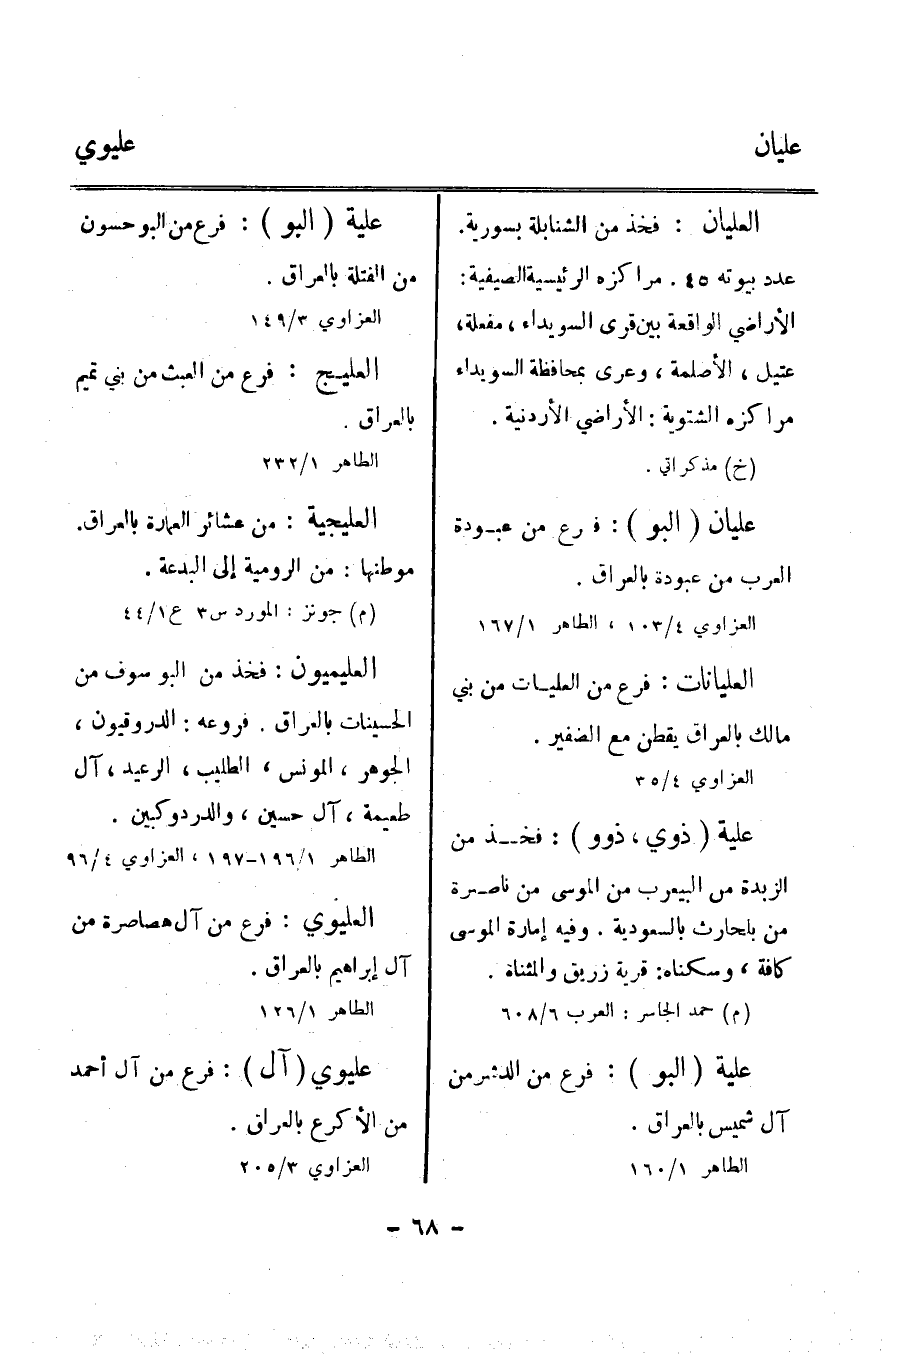 عليان
عليوي
العليان : فخذ من الشنابلة بسورية.
عدد بيوته ٤٥ . مراكزه الرئيسية الصيفية :
الأراضي الواقعة بين قرى السويداء ، مفعلة ،
عتيل ، الأصلمة ، وعرى بمحافظة السويداء
مراكزه الشتوية : الأراضي الأردنية .
(خ) مذكراتي .
عليان ( البو ) : فرع من عبـودة
العرب من عبودة بالعراق .
العزاوي ١٠٣/٤ ، الطاهر ١٦٧/١
العليانات : فرع من العليـات من بني
مالك بالعراق يقطن مع الضفير .
العزاوي ٣٥/٤
علية ( ذوي ، ذوو ) : فخــذ من
الزبدة من البيعرب من الموسى من ناصـرة
من بلحارث بالسعودية . وفيه إمارة الموسى
كافة ، وسكناه: قرية زريق والمثناة .
(م) حمد الجاسر : العرب ٦٠٨/٦
علية ( البو ) : فرع من الدثر من
آل شميس بالعراق .
الطاهر ١٦٠/١
علية ( البو ) : فرع من البو حسون
من الفتلة بالعراق .
العزاوي ١٤٩/٣
العليـج : فرع من العبث من بني تميم
بالعراق .
الطاهر ٢٣٢/١
العليجية : من عشائر العمارة بالعراق.
موطنها : من الرومية إلى البدعة .
(م) جونز : المورد س٣ ع٤٤/١
العليميون : فخذ من البو سوف من
الحسينات بالعراق . فروعه : الدروقيون ،
الجوهر ، المونس ، الطليب ، الرعيد ، آل
طعيمة ، آل حسين ، والدردوكيين .
الطاهر ١٩٦/١-١٩٧ ، العزاوي ٩٦/٤
العليوي : فرع من آل هصاصرة من
آل إبراهيم بالعراق .
الطاهر ١٢٦/١
عليوي ( آل ) : فرع من آل أحمد
من الأكرع بالعراق .
العزاوي ٢٠٥/٣
- ٦٨ -